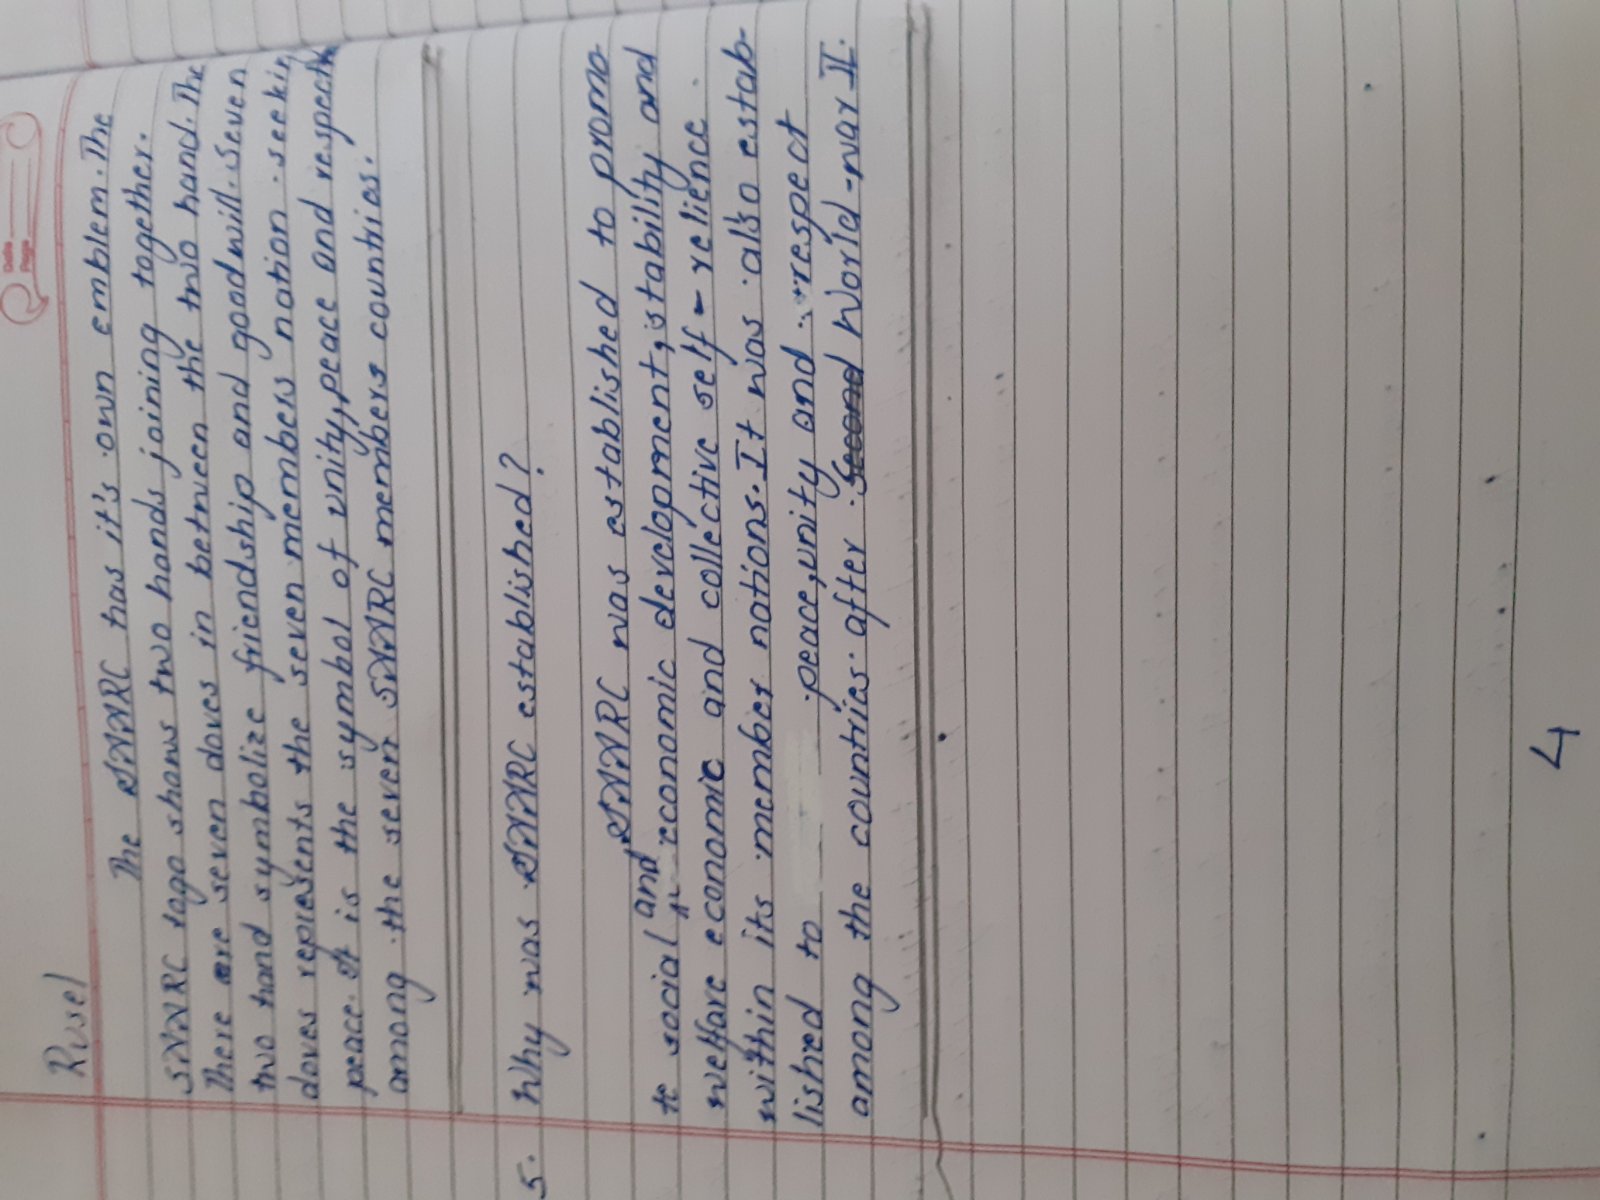 Rusel
Date
Page
The SAARC has it's own emblem. The
SAARC logo shows two hands joining together.
There are seven doves in between the two hand. The
two hand symbolize friendship and goodwill. seven
doves represents the seven members nation seekin
peace. It is the symbol of unity, peace and respect
among the seven SAARC members countries.
5. Why was SAARC established?
SAARC was established to promo-
te social and economic development, stability and
welfare economic and collective self-relience.
within its member nations. It was also estab-
lished to peace, unity and respect
among the countries after second World-war II.
4